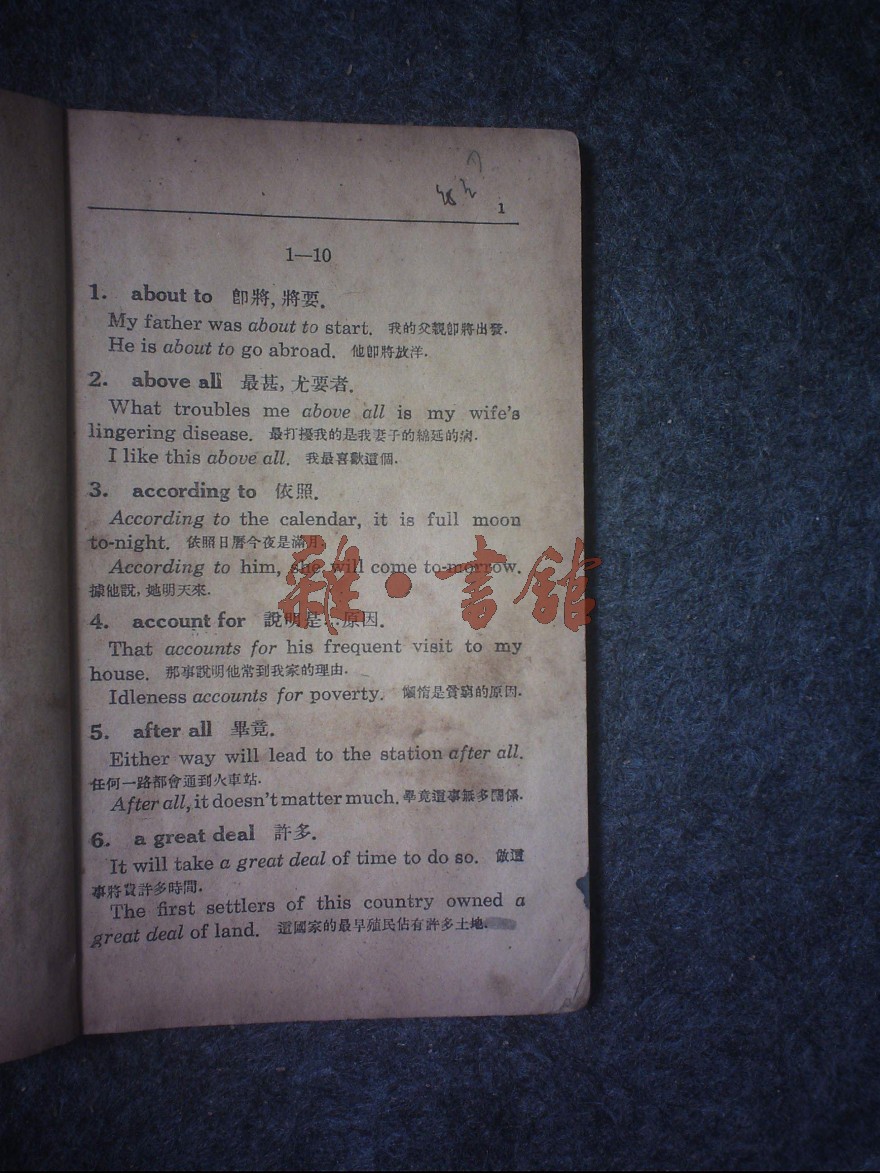 1
1—10
1. about to 即將, 將要.
My father was about to start. 我的父親即將出發.
He is about to go abroad. 他即將放洋.
2. above all 最甚, 尤要者.
What troubles me above all is my wife's
lingering disease. 最打擾我的是我妻子的綿延的病.
I like this above all. 我最喜歡這個.
3. according to 依照.
According to the calendar, it is full moon
to-night. 依照日曆今夜是滿月.
According to him, she will come to-morrow.
據他說, 她明天來.
雜·書館
4. account for 說明是…原因.
That accounts for his frequent visit to my
house. 那事說明他常到我家的理由.
Idleness accounts for poverty. 懶惰是貧窮的原因.
5. after all 畢竟.
Either way will lead to the station after all.
任何一路都會通到火車站.
After all, it doesn't matter much. 畢竟這事無多關係.
6. a great deal 許多.
It will take a great deal of time to do so. 做這
事將費許多時間.
The first settlers of this country owned a
great deal of land. 這國家的最早殖民佔有許多土地.